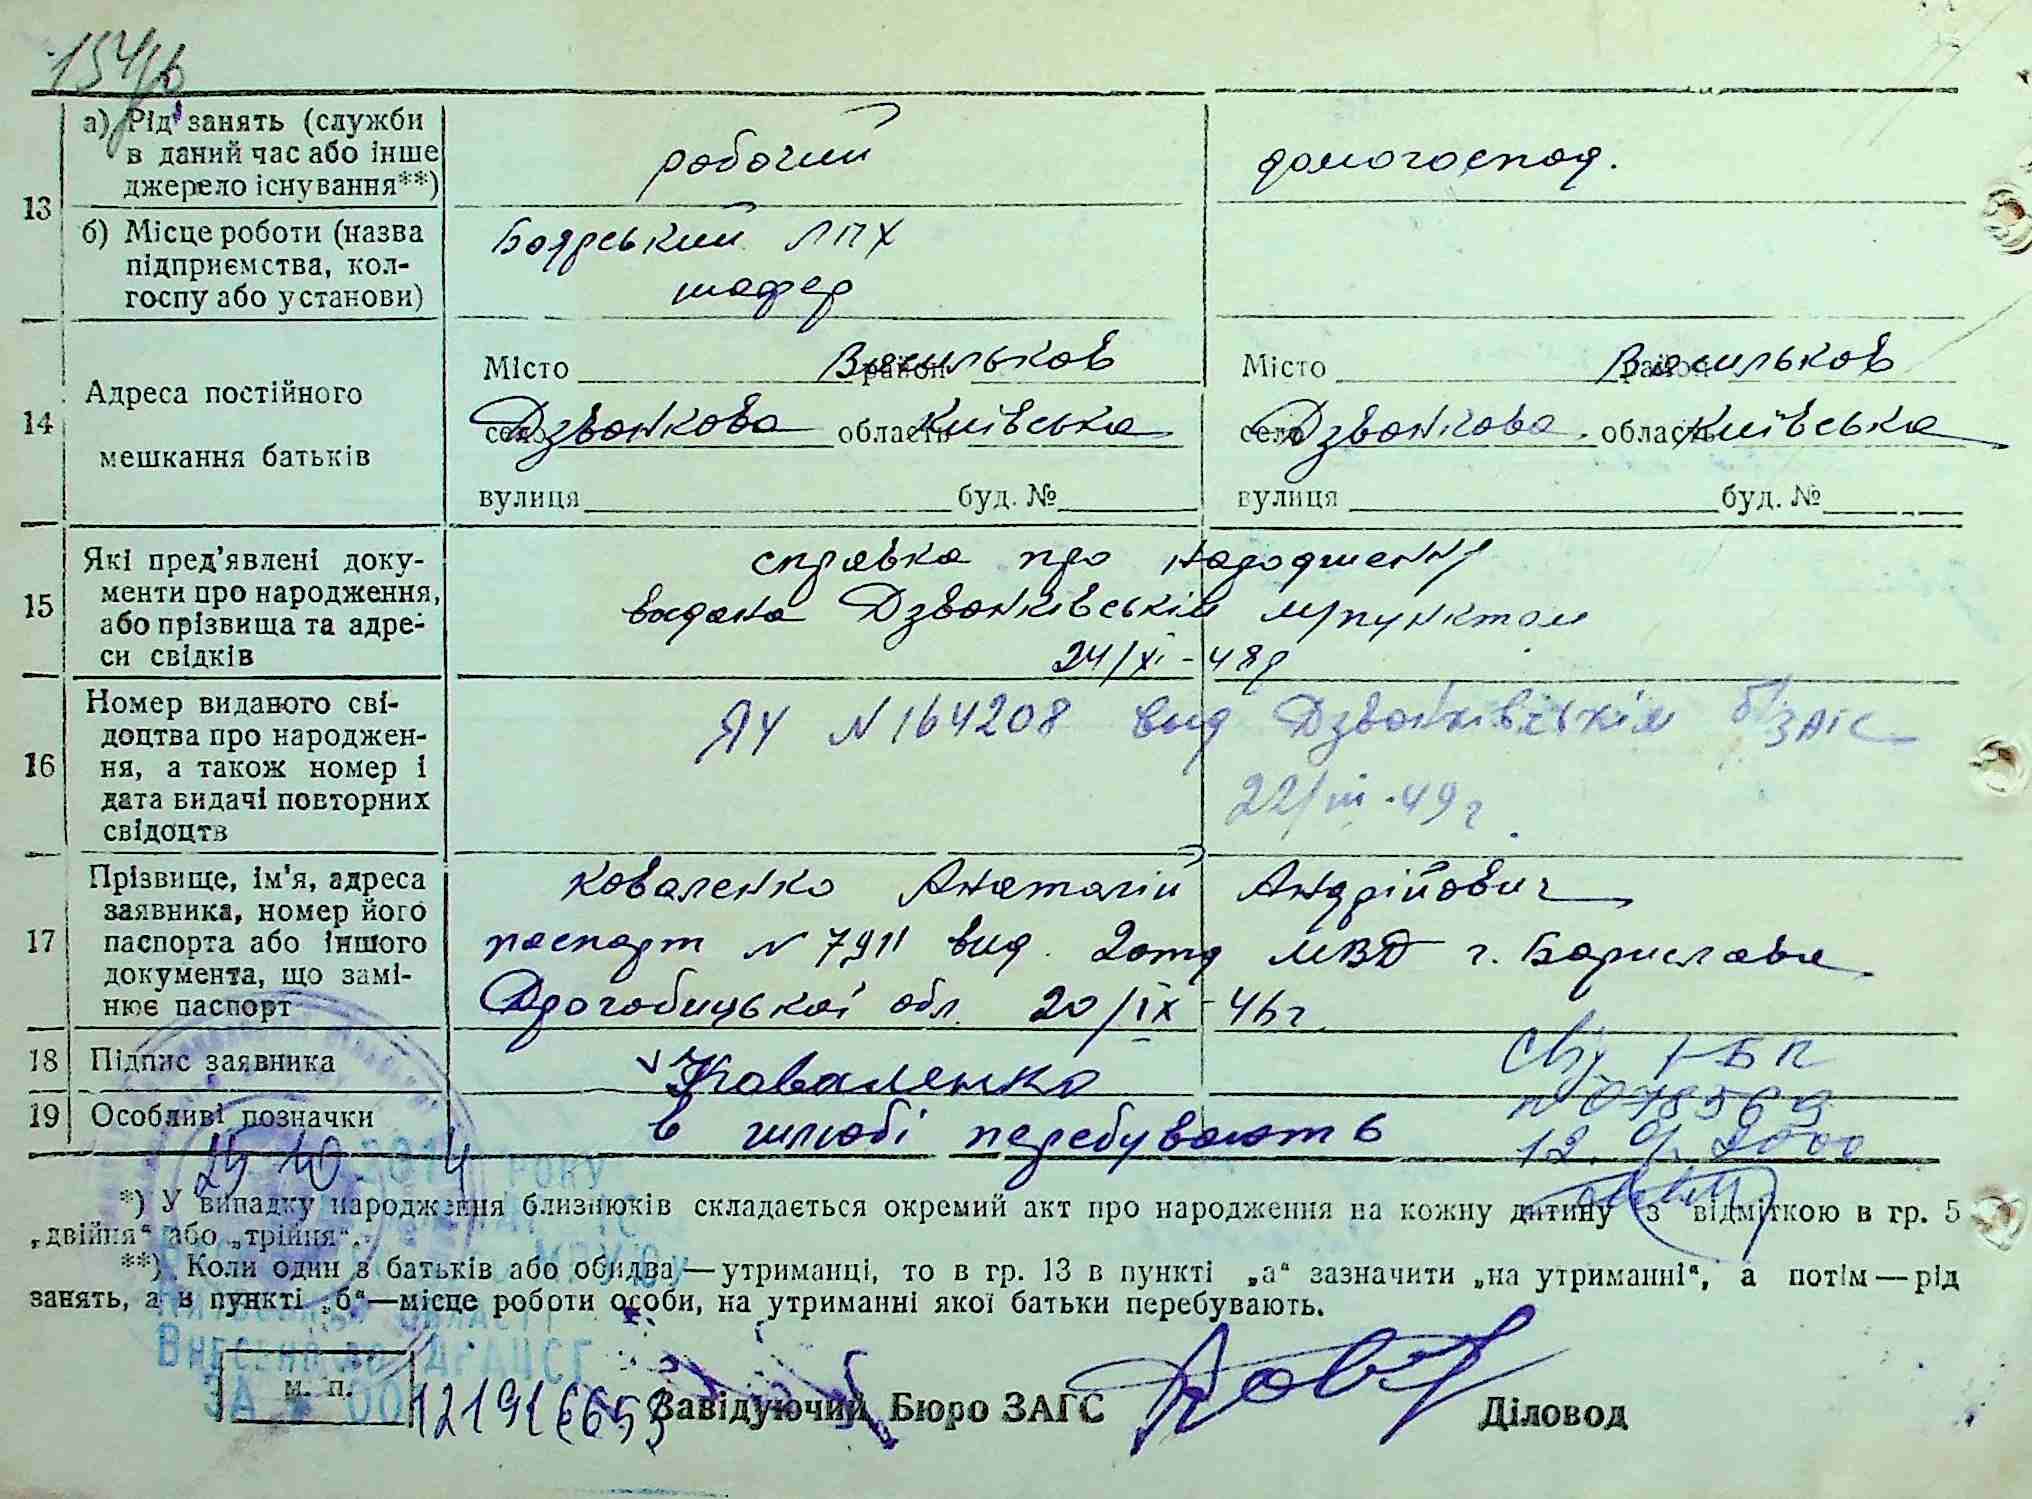 154/6
13
а) Рід занять (служби
в даний час або інше
джерело існування**)
робочий
домогоспод.
б) Місце роботи (назва
підприємства, кол-
госпу або установи)
Боярський ЛПХ
шофер
14
Адреса постійного
мешкання батьків
Місто район Васильков
село Дзвонкова область Київська
вулиця буд. №
Місто район Васильков
село Дзвонкова область Київська
вулиця буд. №
15
Які пред'явлені доку-
менти про народження,
або прізвища та адре-
си свідків
справка про народження
видана Дзвонківськім м/пунктом
24/XI-48р
16
Номер виданого сві-
доцтва про народжен-
ня, а також номер і
дата видачі повторних
свідоцтв
ЯУ N 164208 вид Дзвонківськім б. ЗАГС
22/III-49г.
17
Прізвище, ім'я, адреса
заявника, номер його
паспорта або іншого
документа, що замі-
нює паспорт
Коваленко Анатолій Андрійович
паспорт N 7911 вид. 2 отд МВД г. Борислава
Дрогобицької обл. 20/IX-46г
18 Підпис заявника
Коваленко
19 Особливі позначки
в шлюбі перебувають
І-БП
*) У випадку народження близнюків складається окремий акт про народження на кожну дитину з відміткою в гр. 5
„двійня“ або „трійня“.
**) Коли один з батьків або обидва—утриманці, то в гр. 13 в пункті „а“ зазначити „на утриманні“, а потім—рід
занять, а в пункті „б“—місце роботи особи, на утриманні якої батьки перебувають.
РОКУ
Внесено до ДРАЦСГ
ЗА
м. п.
Завідуючий Бюро ЗАГС
Діловод